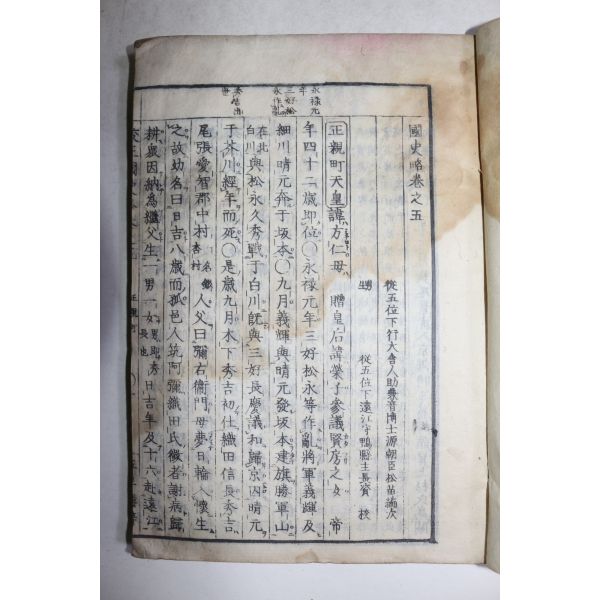 國史略卷之五
從五位下行大舍人助兼音博士源朝臣松苗編次
男 從五位下遠江守鴨縣主長寶 校
正親町天皇諱方仁母 贈皇后諱榮子參議賢房之女 帝
年四十二歲即位〇永禄元年三好松永等作亂將軍義輝及
細川晴元奔于坂本〇九月義輝與晴元發坂本建旗勝軍山
在北白川與松永久秀戰于白川既與三好長慶議和歸京因晴元
于芥川經年而死〇是歲九月木下秀吉初仕織田信長秀吉
尾張愛智郡中村人父曰彌右衞門母夢日輪入懷生
之故幼名曰日吉八歲而孤邑人筑阿彌織田氏微者謝病歸
耕衆因納為繼父生一男一女長也日吉年及十六赴遠江
永禄元年三好松永作亂
秀吉出世
正親町